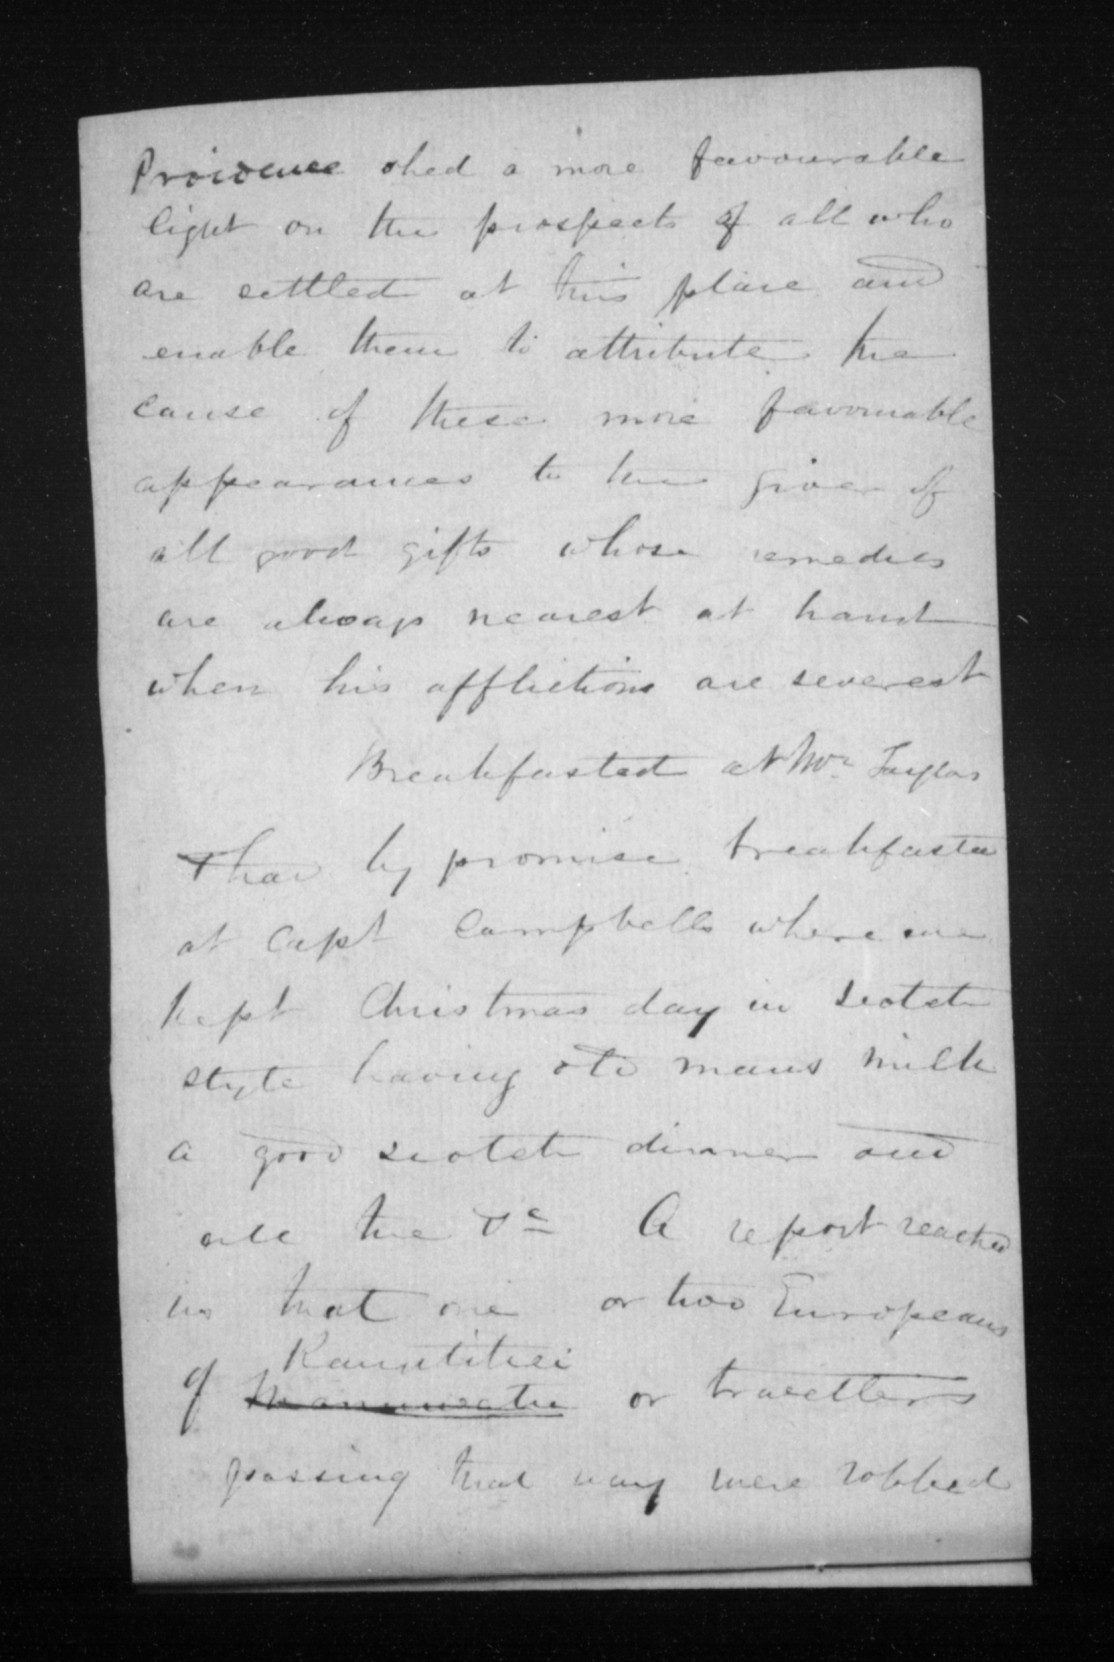 Providence shed a more favourable
light on the prospects of all who
are settled at this place and
enable them to attribute the
cause of these more favourable
appearances to the giver of
all good gifts whose remedies
are always nearest at hand
when his afflictions are severest
Breakfasted at Mr Taylors
by promise breakfasted
at Capt Campbells where we
kept Christmas day in Scotch
style having old mans milk
a good Scotch dinner and
all the &c A report reached
us that one or two Europeans
Rangitikei
of Manawatu or travellers
passing that way were robbed